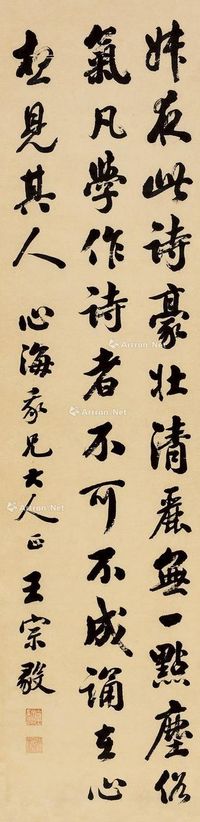 妹夜此詩豪壯清麗無一點塵俗
氣凡學作詩者不可不成誦在心
想見其人
心海家兄大人正
王宗敬
ArtronNet
ArtronNet
ArtronNet
ArtronNet